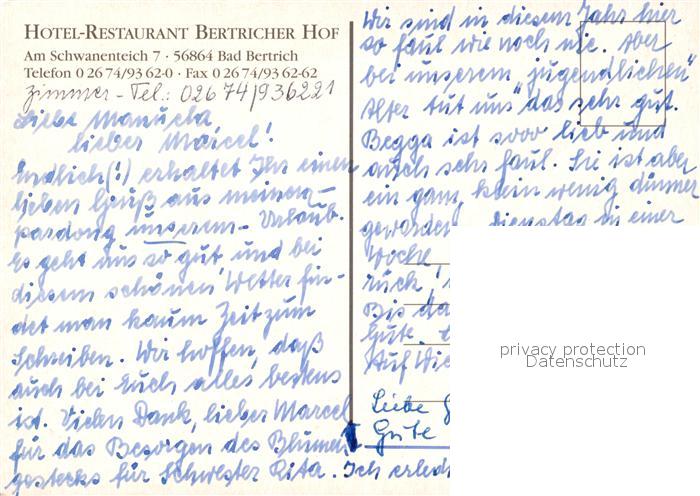 HOTEL-RESTAURANT BERTRICHER HOF
Am Schwanenteich 7 · 56864 Bad Bertrich
Telefon 0 26 74/93 62-0 · Fax 0 26 74/93 62-62
Zimmer-Tel.: 02674/936221
Liebe Manuela,
lieber Marcel!
Endlich(!) erhaltet Ihr einen
lieben Gruß aus meinem –
pardong unserem – Urlaub.
Es geht uns so gut und bei
diesem schönen Wetter fin-
det man kaum Zeit zum
Schreiben. Wir hoffen, daß
auch bei Euch alles bestens
ist. Vielen Dank, lieber Marcel
für das Besorgen des Blumen
gestecks für Schwester Rita. Ich erled
Wir sind in diesem Jahr hier
so faul wie noch nie. Aber
bei unserem „jugendlichen"
Alter tut uns das sehr gut.
Begga ist sooo lieb und
auch sehr faul. Sie ist aber
ein ganz klein wenig dünner
geworden. Dienstag in einer
Woche
rück,
Bis da
Gute.
Auf Wie
Liebe G
Gute
privacy protection
Datenschutz